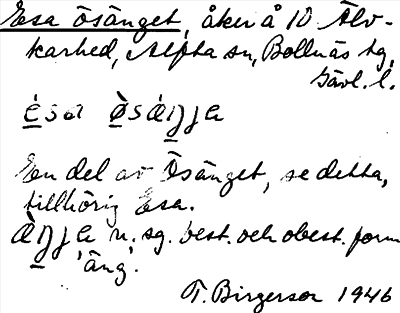 Esa Ösänget, åker å 10 Älv-
karhed, Alfta sn, Bollnäs tg,
Gävl. l.
ésa ø̀sáŋja
En del av Ösänget, se detta,
tillhörig Esa.
àŋja n. sg. best. och obest. form
'äng'.
T. Birgersor 1946